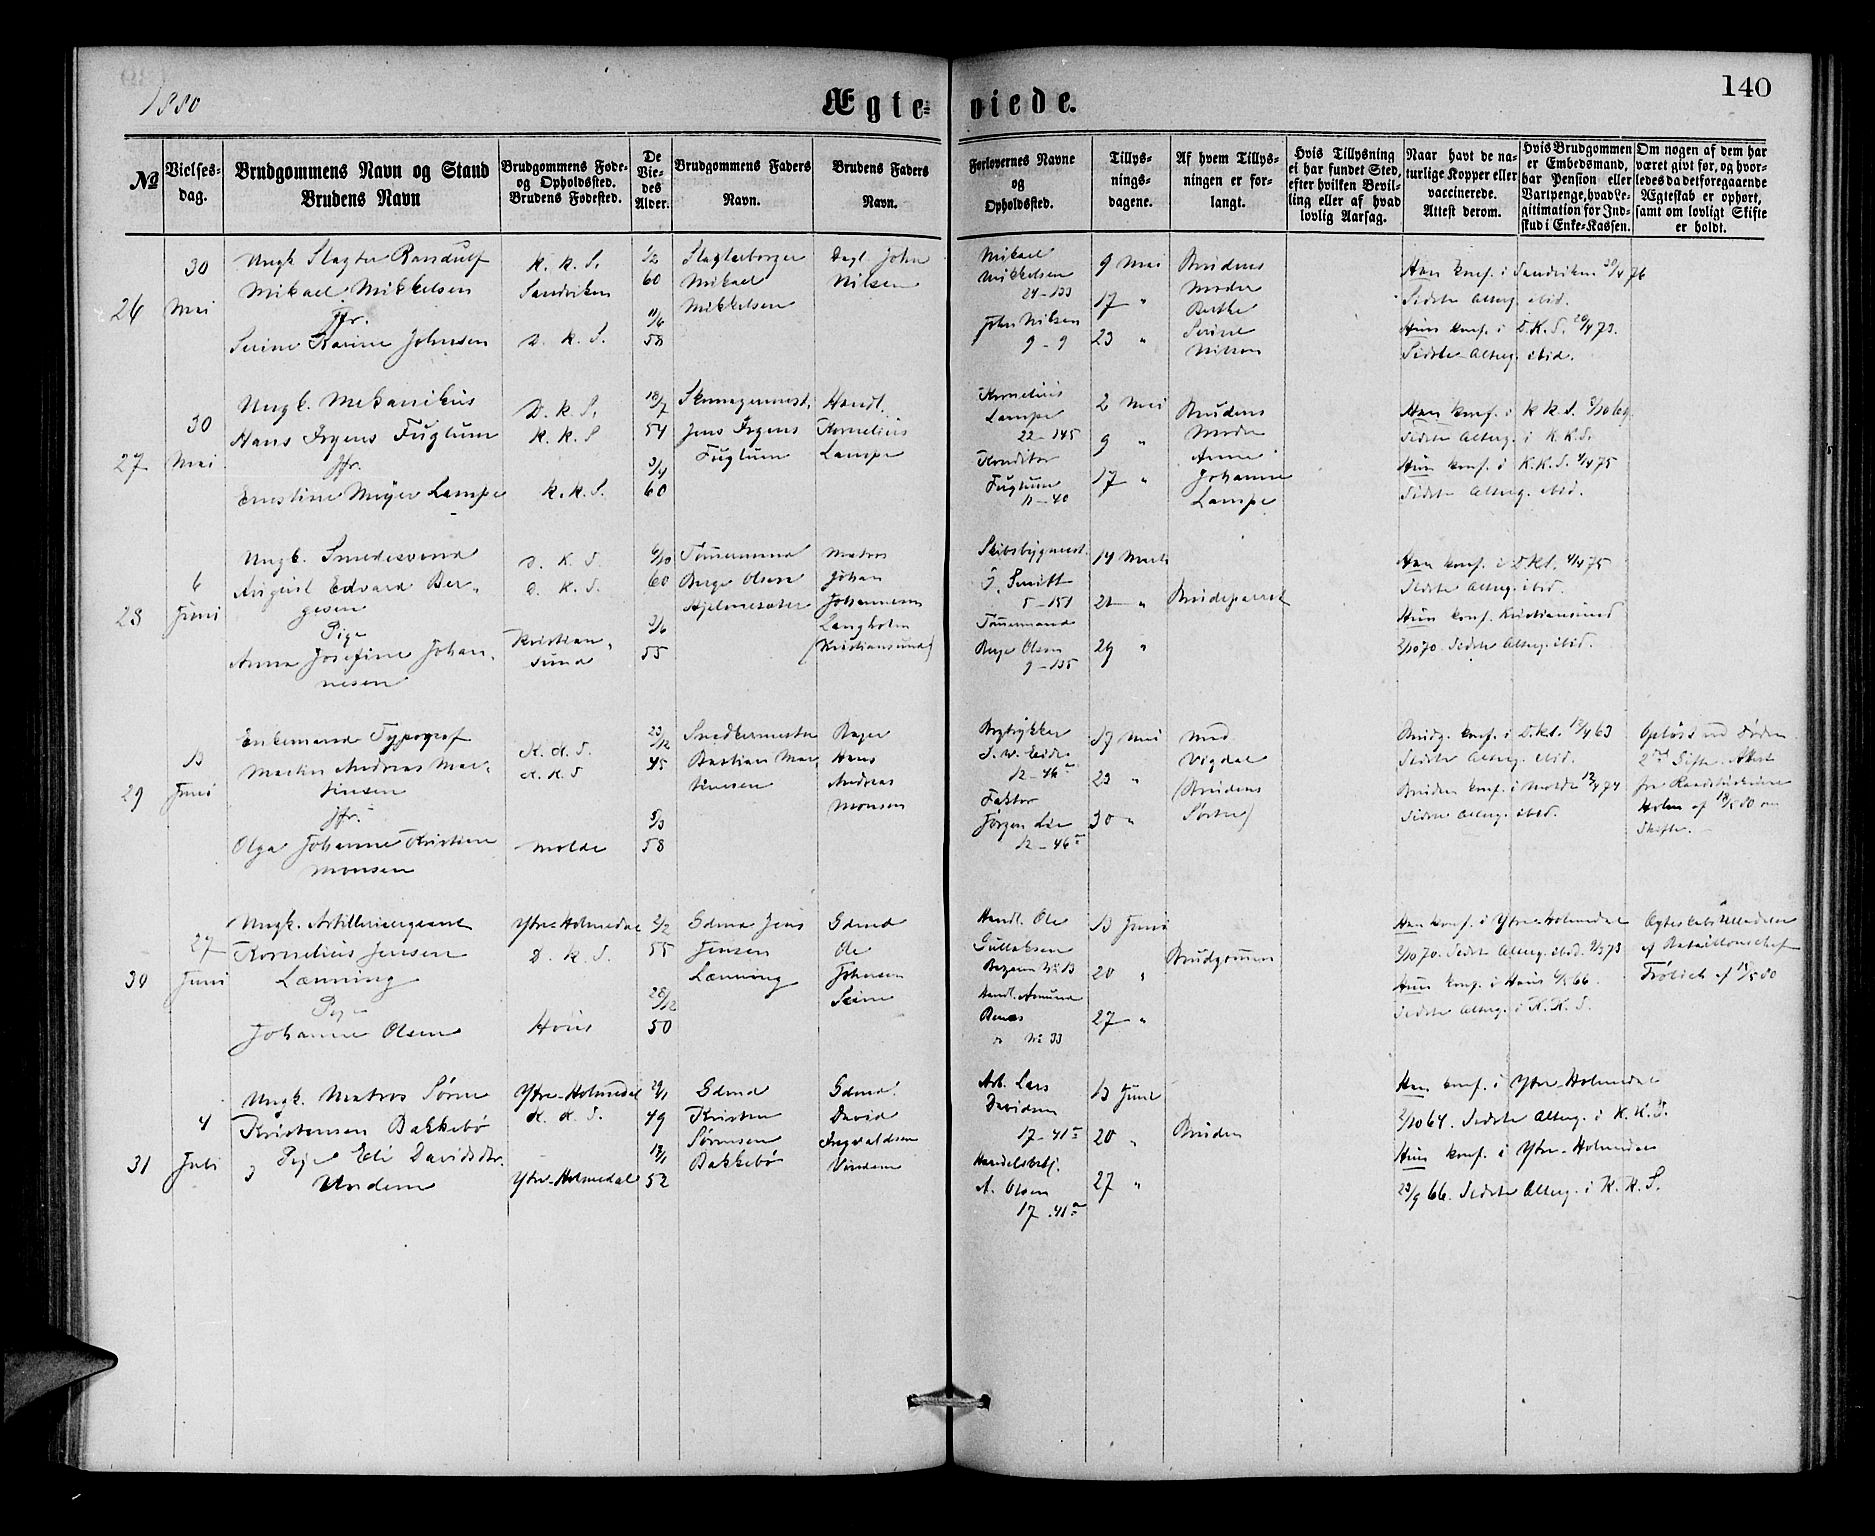 1880
Ægte-viede.
140
No
Vielses-dag.
Brudgommens Navn og Stand
Brudens Navn
Brudgommens Føde-
og Opholdssted.
Brudens Fødested.
De Vie-des Alder.
Brudgommens Faders Navn.
Brudens Faders Navn.
Forlovernes Navne
og
Opholdssted.
Tillys-
nings-
dagene.
Af hvem Tillys-
ningen er for-
langt.
Hvis Tillysning
ei har fundet Sted,
efter hvilken Bevil-
ling eller af hvad
lovlig Aarsag.
Naar havt de na-
turlige Kopper eller
vaccinerede.
Attest derom.
Hvis Brudgommen
er Embedsmand,
har Pension eller
Vartpenge, hvad Le-
gitimation for Ind-
skud i Enke-Kassen.
Om nogen af dem har
været givt før, og hvor-
ledes da det foregaaende
Ægteskab er ophørt,
samt om lovligt Skifte
er holdt.
26
30
Mai
Ungk. Slagter
Mikael Mikkelsen
Jfr.
Serine Karine Johnsen
K. K. S.
Sandviken
D. K. S.
1/2
60
11/6
58
Slagterborger
Mikael
Mikkelsen
Dagl. John
Nilsen
Mikael
Mikkelsen
24-133
John Nilsen
9-9
9 Mai
17 "
23 "
Brudens
Moder
Berthe
Serine
Nilsen
Han konf. i Sandviken 30/4 76
Sidste Alterg. ibid.
Hun konf. i D.K.S. 20/4 73.
Sidste Alterg. ibid.
27
30
Mai
Ungk. Mekanikus
Hans Irgens Fuglum
Jfr.
Ernestine Meyer Lampe
D. K. S.
K. K. S
K. K. S.
18/7
54
3/4
60
Skomagermest.
Jens Irgens
Fuglum
Handl.
Kornelius
Lampe
Kornelius
Lampe
22-145
Konditor
Fuglum
11-40
2 Mai
9 "
17 "
Brudens
Moder
Anne
Johanne
Lampe
Han konf. i K.K.S. 3/10 69.
Sidste Alterg. i K.K.S.
Hun konf. i K.K.S. 4/4 75
Sidste Alterg. ibid.
28
6
Juni
Ungk. Smedesvend
August Edvard Ber-
gesen
Pige
Anna Josefine Johan-
nesen
D. K. S
D. K. S.
Kristian-
sund
6/10
60
3/6
55
Tømmermand
Berge Olsen
Hjelmesæter
Matros
Johan
Johannesen
Langholm
(Kristiansund)
Skibsbygmest.
J. Smitt
5-151
Tømmermand
Berge Olsen
9-135
14 Marts
21 "
29 "
Brudeparret
Han konf. i DKS. 4/4 75
Sidste Alterg. ibid.
Hun konf. Kristiansund
2/10 70. Sidste Alterg. ibid.
29
13
Juni
Enkemand Typograf
Martin Andreas Mar-
tinsen
Jfr.
Olga Johanne Kristine
Monsen
K. K. S.
K. K. S
Molde
23/12
45
5/3
58
Snedkermester
Bastian Mar-
tinesen
Bager
Hans
Andreas
Monsen
Bogtrykker
J. W. Eide
12-46a
Faktor
Jørgen Lie
12-46a
17 Mai
23 "
30 "
Vigdal
(Brudens
Søster)
Brudg. konf. i DKS. 12/4 63
Sidste Alterg. ibid.
Bruden konf. i Molde 12/4 74
Sidste Alterg. ibid.
Opløst ved Døden
Holm af 18/5 80 om
Skifte.
30
27
Juni
Ungk. Artillerisergeant
Kornelius Jensen
Lænning
Pige
Johanne Olsen
Ytre-Holmedal
D. K. S.
Hous
2/2
55
28/12
50
Gdmd Jens
Jensen
Lænning
Gdmd
Ole
Johnsen
Seim
Handl. Ole
Gullaksen
Bazaren No 13
Handl. Amund
Benes
" No 33
13 Juni
20 "
27 "
Brudgommen
Han konf. i Ytre-Holmedal
2/10 70. Sidste Alterg. ibid. 9/3 73
Hun konf. i Hous 66.
Sidste Alterg. i K.K.S.
Ægteskabstilladelse
af Bataillonschef
Frølich af 18/5 80
31
4
Juli
Ungk. Matros Søren
Kristensen Bakkebø
Pige Eli Davidsdtr.
Vndem
Ytre-Holmedal
K. K. S.
Ytre-Holmedal
29/1
49
18/1
52
Gdmd
Kristen
Sørensen
Bakkebø
Gdmd.
David
Ingvaldsen
Arb. Lars
Davidsen
17-41a
Handelsbetj.
A. Olsen
17-41a
13 Juni
20 "
27 "
Bruden
Han konf. i Ytre-Holmedal
2/10 64. Sidste Alterg. i K.K.S.
Hun konf. i Ytre-Holmedal
23/9 66. Sidste Alterg. i K.K.S.